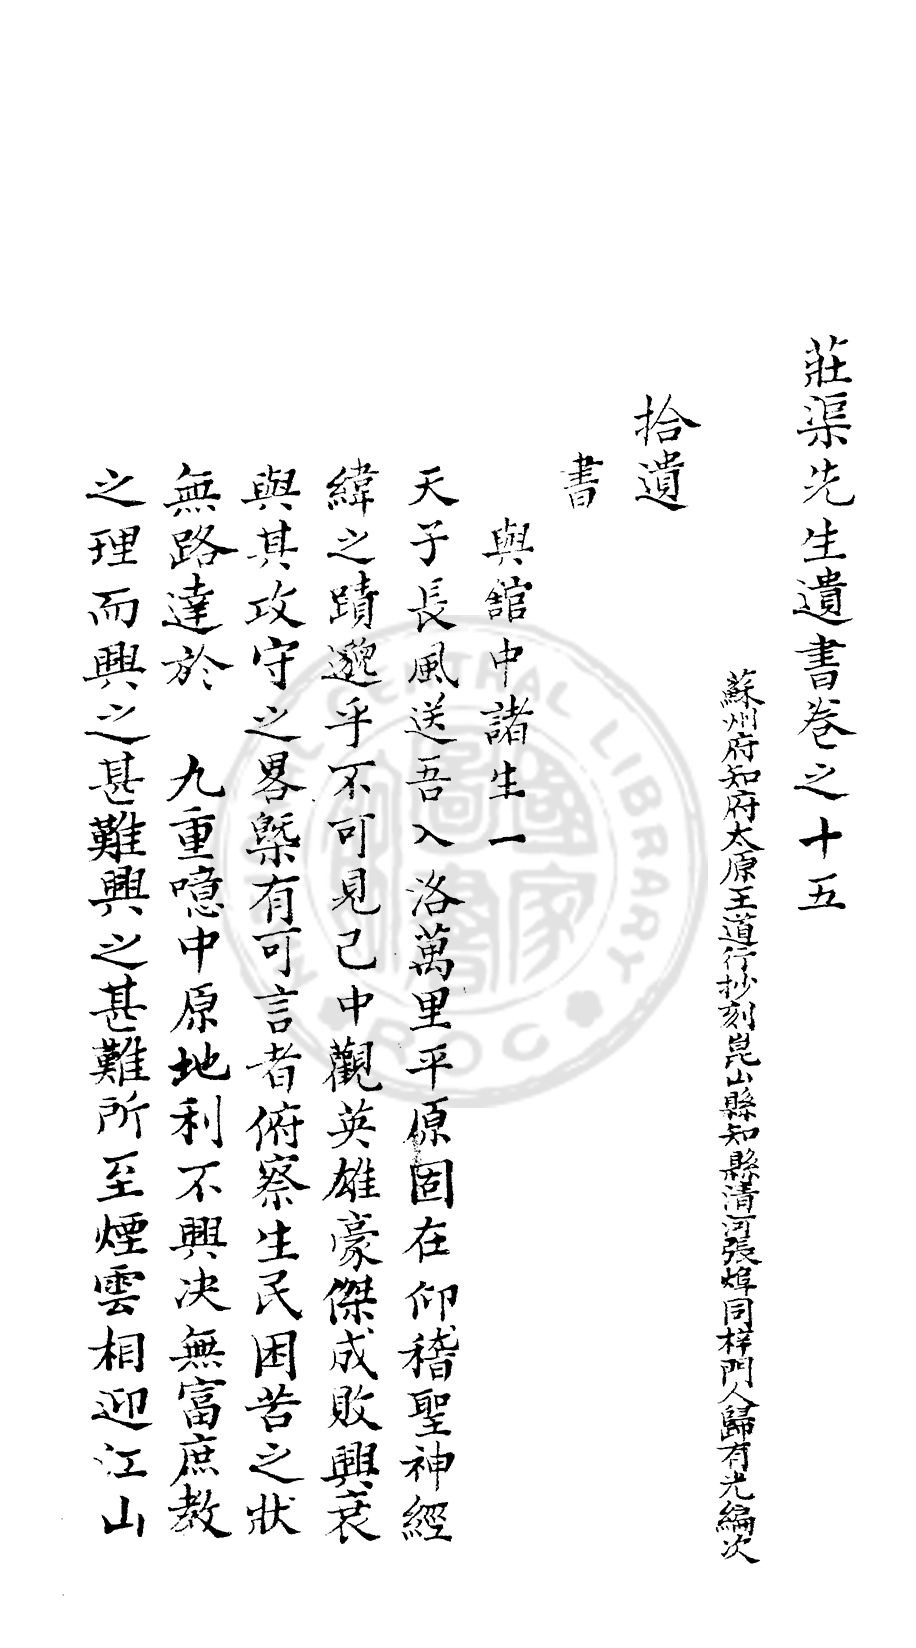 莊渠先生遺書卷之十五
蘇州府知府太原王道行抄刻崑山縣知縣清河張焯同梓門人歸有光編次
拾遺
書
與舘中諸生一
天子長風送吾入洛萬里平原固在仰稽聖神經
緯之蹟邈乎不可見已中觀英雄豪傑成敗興衰
與其攻守之畧槩有可言者俯察生民困苦之狀
無路達於 九重噫中原地利不興决無富庶教
之理而興之甚難興之甚難所至煙雲相迎江山
NATIONAL CENTRAL LIBRARY
ROC
國家圖書館